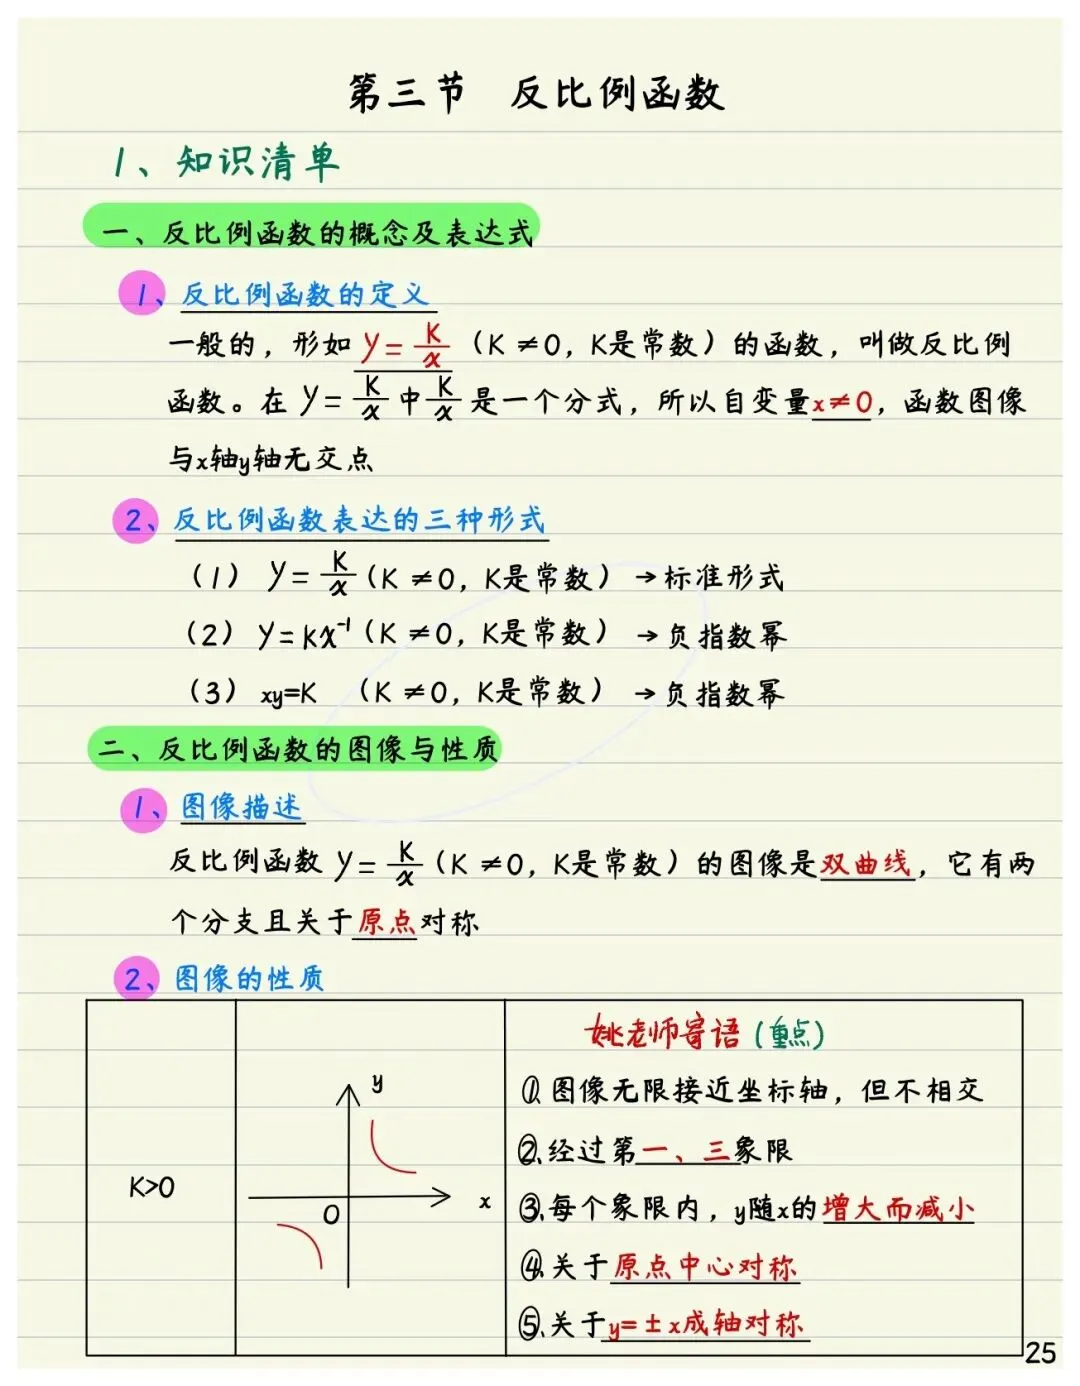 第三节 反比例函数
1、知识清单
一、反比例函数的概念及表达式
1、反比例函数的定义
一般的，形如 y=K/x（K≠0，K是常数）的函数，叫做反比例
函数。在 y=K/x 中 K/x 是一个分式，所以自变量x≠0，函数图像
与x轴y轴无交点
2、反比例函数表达的三种形式
（1） y=K/x（K≠0，K是常数）→标准形式
（2） y=kx⁻¹（K≠0，K是常数）→负指数幂
（3） xy=K （K≠0，K是常数）→负指数幂
二、反比例函数的图像与性质
1、图像描述
反比例函数 y=K/x（K≠0，K是常数）的图像是双曲线，它有两
个分支且关于原点对称
2、图像的性质
K>0
y
x
O
姚老师寄语（重点）
①.图像无限接近坐标轴，但不相交
②.经过第一、三象限
③.每个象限内，y随x的增大而减小
④.关于原点中心对称
⑤.关于y=±x成轴对称
25